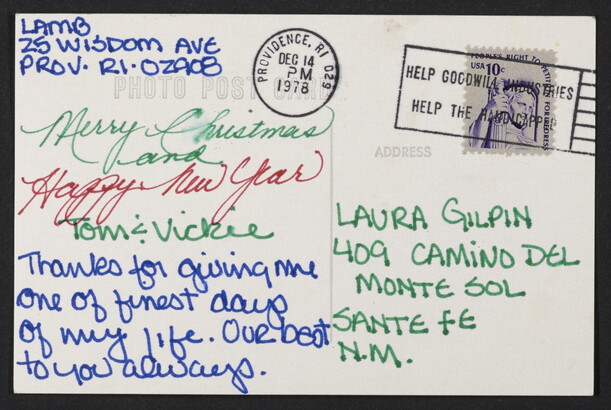 LAMB
25 WISDOM AVE
PROV. RI. 02908
PHOTO POST CARD
PROVIDENCE, RI 029
DEC 14
PM
1978
HELP GOODWILL INDUSTRIES
HELP THE HANDICAPPED
PEOPLE'S RIGHT TO PETITION
USA 10c
FOR REDRESS
ADDRESS
Merry Christmas
and
Happy New Year
Tom & Vickie
Thanks for giving me
one of finest days
of my life. OUR best
to you always.
LAURA GILPIN
409 CAMINO DEL
MONTE SOL
SANTE FE
N.M.